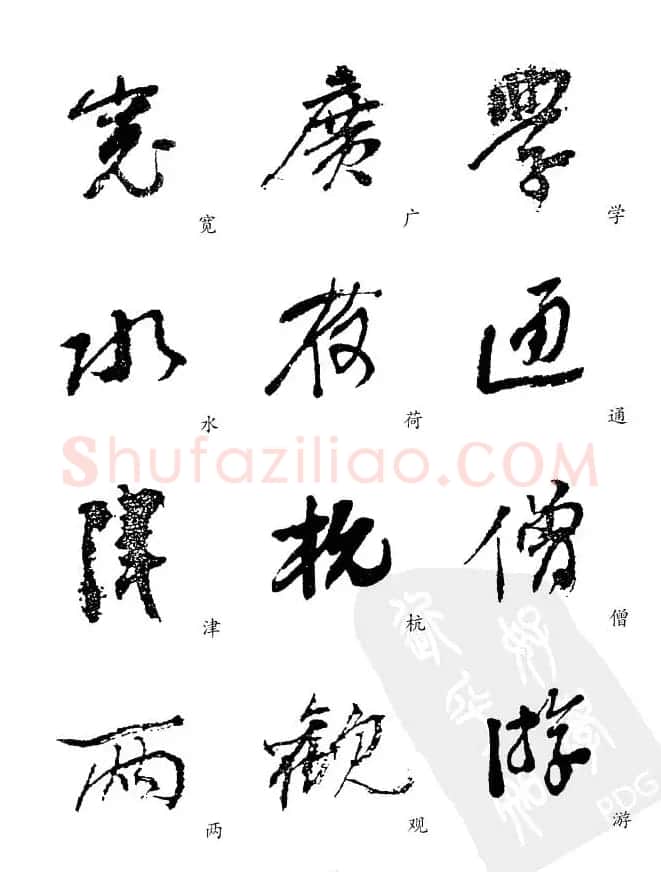 寬 廣 學
宽 广 学
水 荷 通
水 荷 通
Shufaziliao.COM
津 杭 僧
津 杭 僧
兩 觀 游
两 观 游
PDG